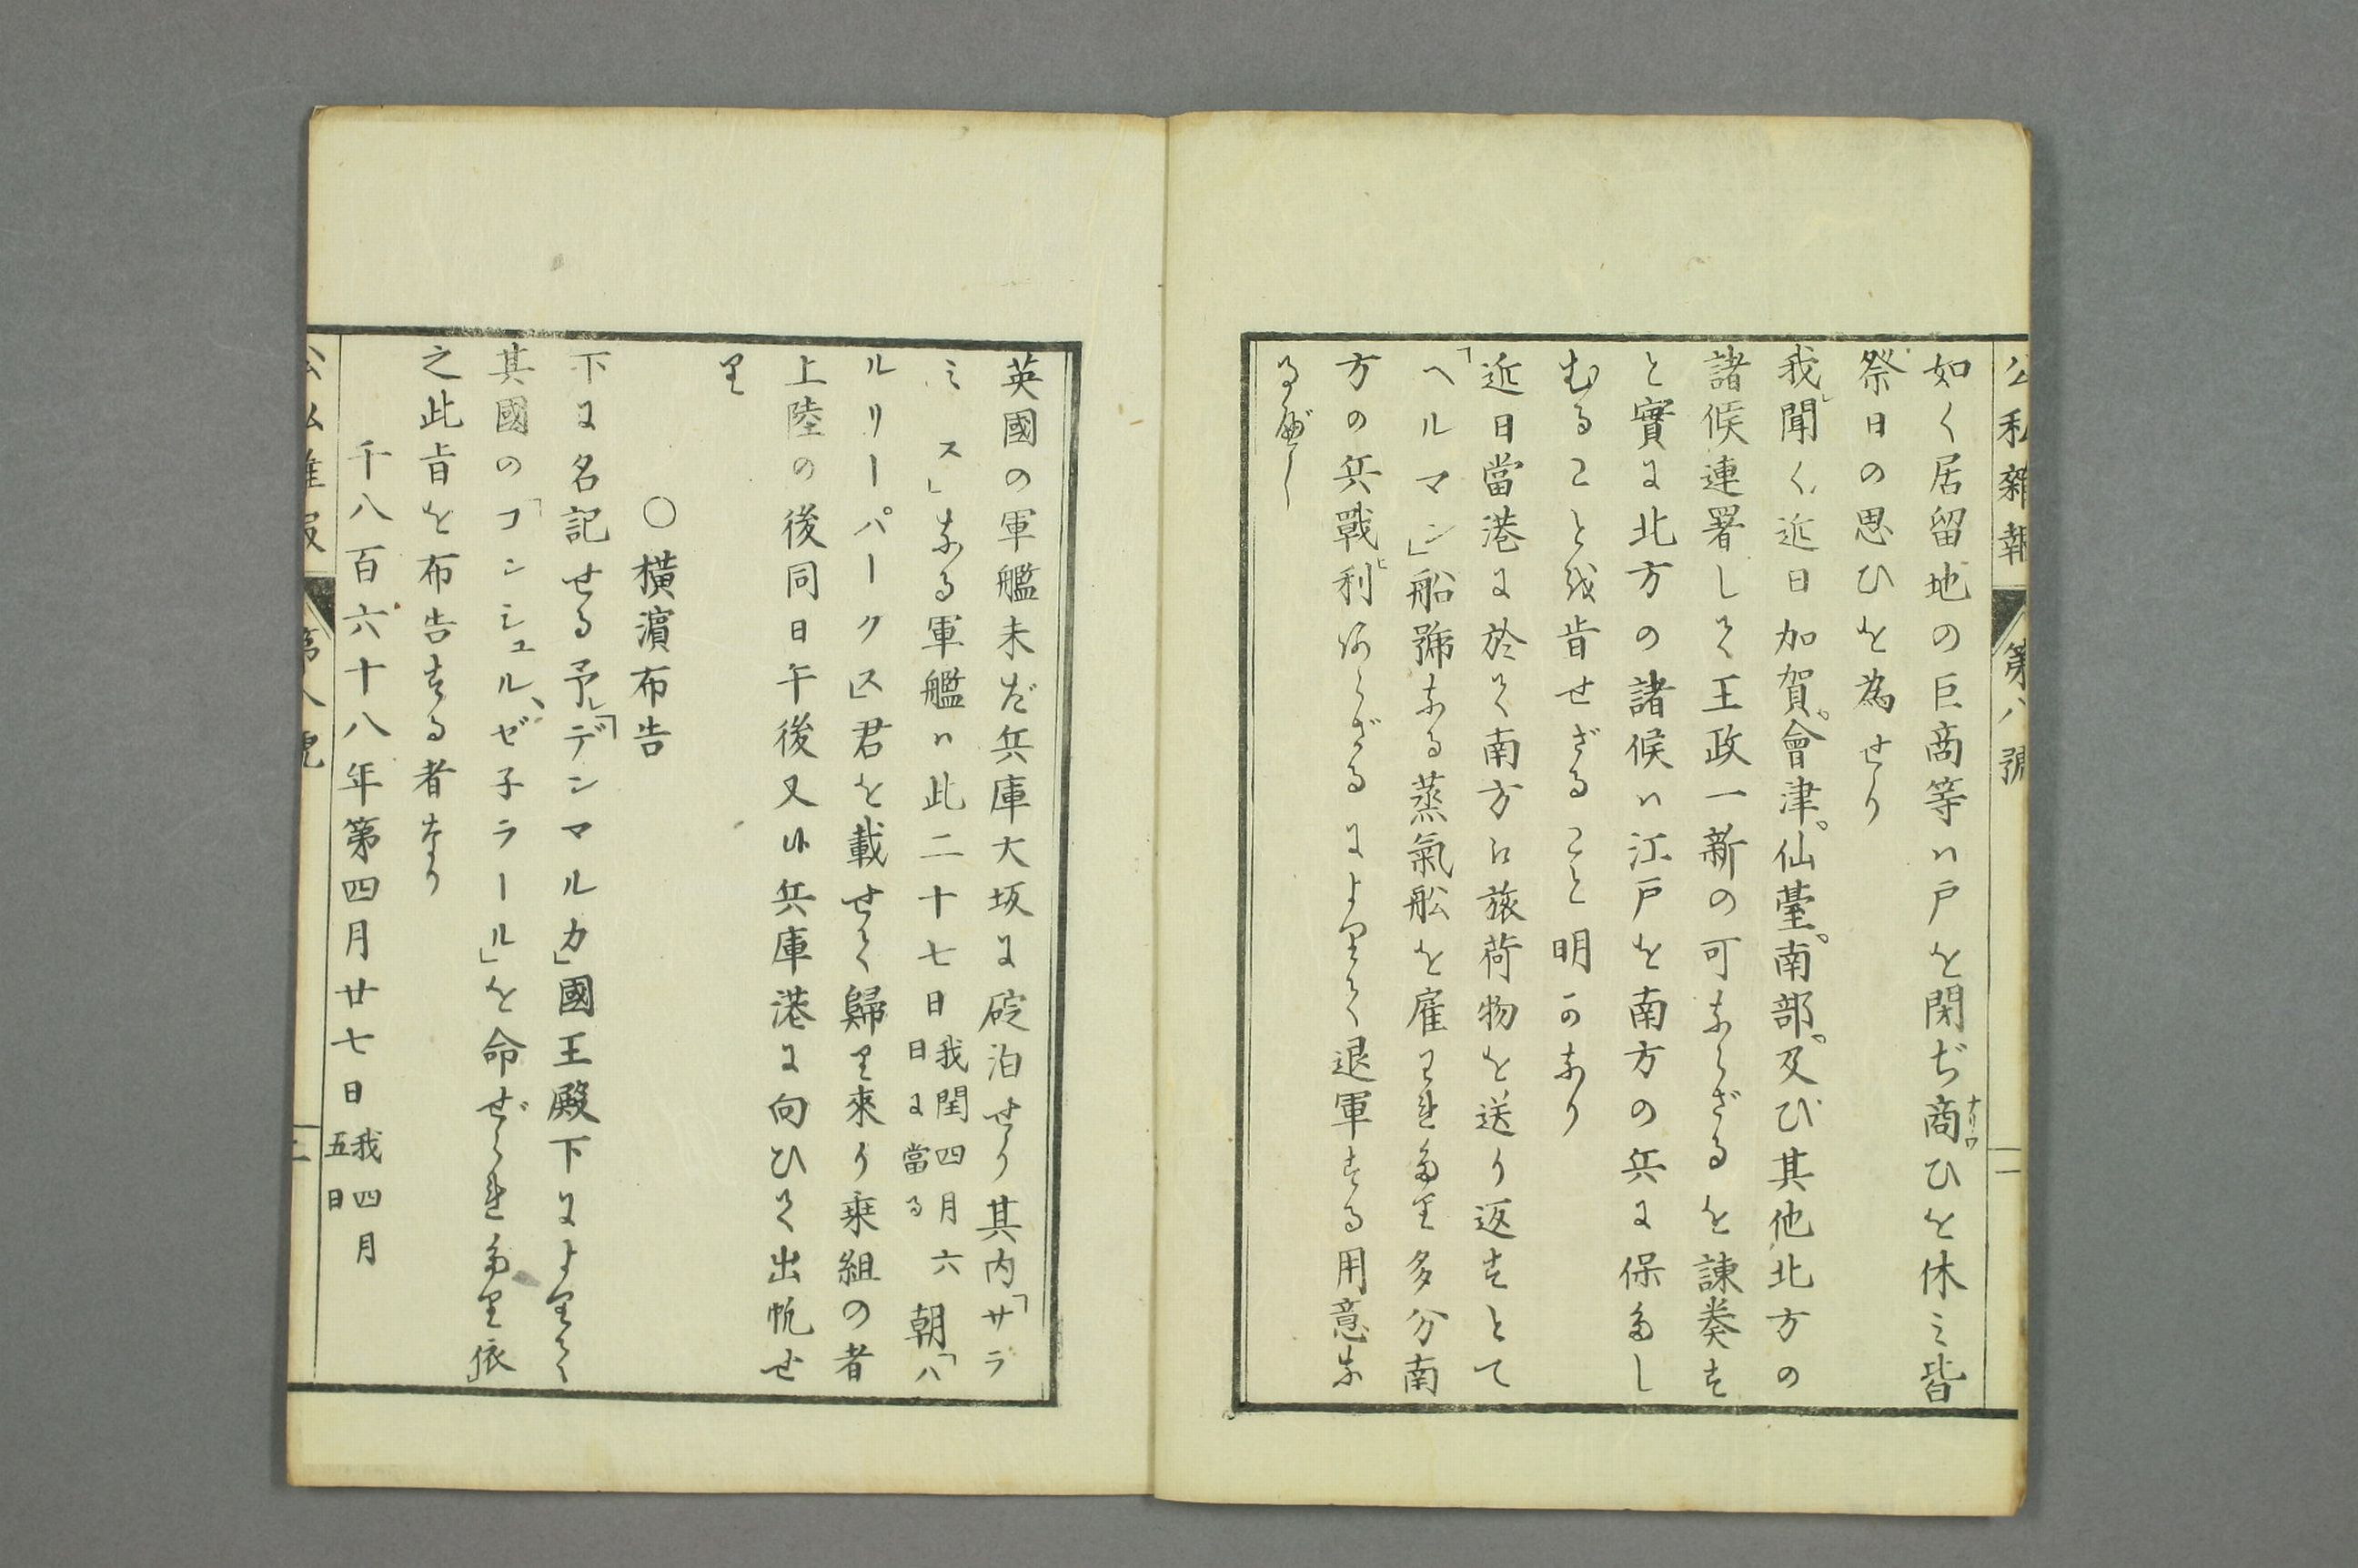 公私雜報 第八號 二
如く居留地の巨商等ハ戸を閉ぢ商ひを休ミ皆
ナリワ
祭日の思ひを為せり
我聞く近日加賀。會津。仙臺。南部。及び其他北方の
諸候連署して王政一新の可ならざるを諌奏す
と實に北方の諸候ハ江戸を南方の兵に保たし
むることを肯せざること明かなり
近日當港に於て南方に旅荷物を送り返すとて
「ヘルマン」船號なる蒸氣舩を雇われたり多分南
方の兵戰利あらざるによりて退軍する用意な
るべし
英國の軍艦未だ兵庫大坂に碇泊せり其内「サラ
ミス」なる軍艦ハ此二十七日我閏四月六日に當る朝「ハ
ルリーパークス」君を載せて歸り來り乗組の者
上陸の後同日午後又々兵庫港に向ひて出帆せ
り
○橫濵布告
下に名記せる予「デンマルカ」國王殿下によりて
其國の「コンシュル、ゼ子ラール」を命ぜられたり依
之此旨を布告する者なり
千八百六十八年第四月廿七日我四月五日